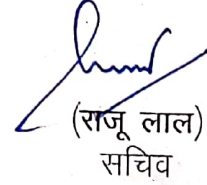 (राजू लाल)
सचिव